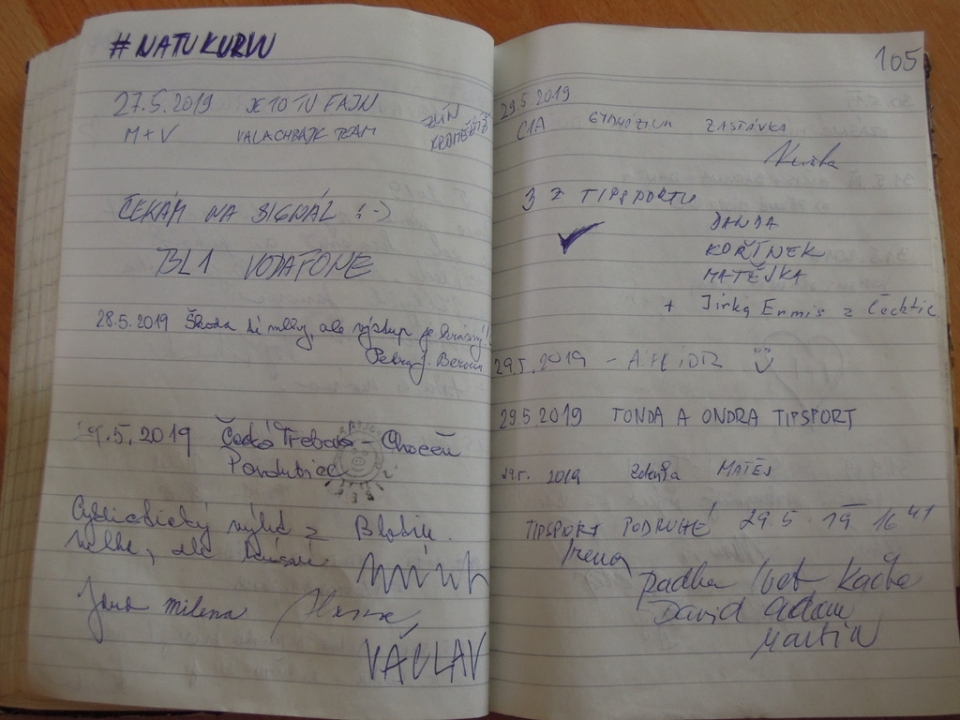 #NATUKURVU
27.5.2019 JE TO TU FAJN
M+V VALACHBAJK TEAM
ZLÍN
KROMĚŘÍŽ
ČEKÁM NA SIGNÁL :-)
BL1 VODAFONE
28.5.2019 Škoda té mlhy, ale výstup je krásný!
Petra J. Beroun
29.5.2019 Česká Třebová - Choceň
Pardubice
Cyklistický výlet z
mlha, ale krásné
Jana Milena
VÁCLAV
105
29.5 2019
C1A GYMNÁZIUM ZASTÁVKA
3 Z TIPSPORTU
DANDA
KOŘÍNEK
MATĚJKA
+ Jirka Ermis z Čachtic
29.5.2019 -
29.5.2019 TONDA A ONDRA TIPSPORT
29.5. 2019 Zdeňka MATĚJ
TIPSPORT PODRUHÉ 29.5. 19 16 41
Irena
Radka Ivet Kačka
David Adam
Martin